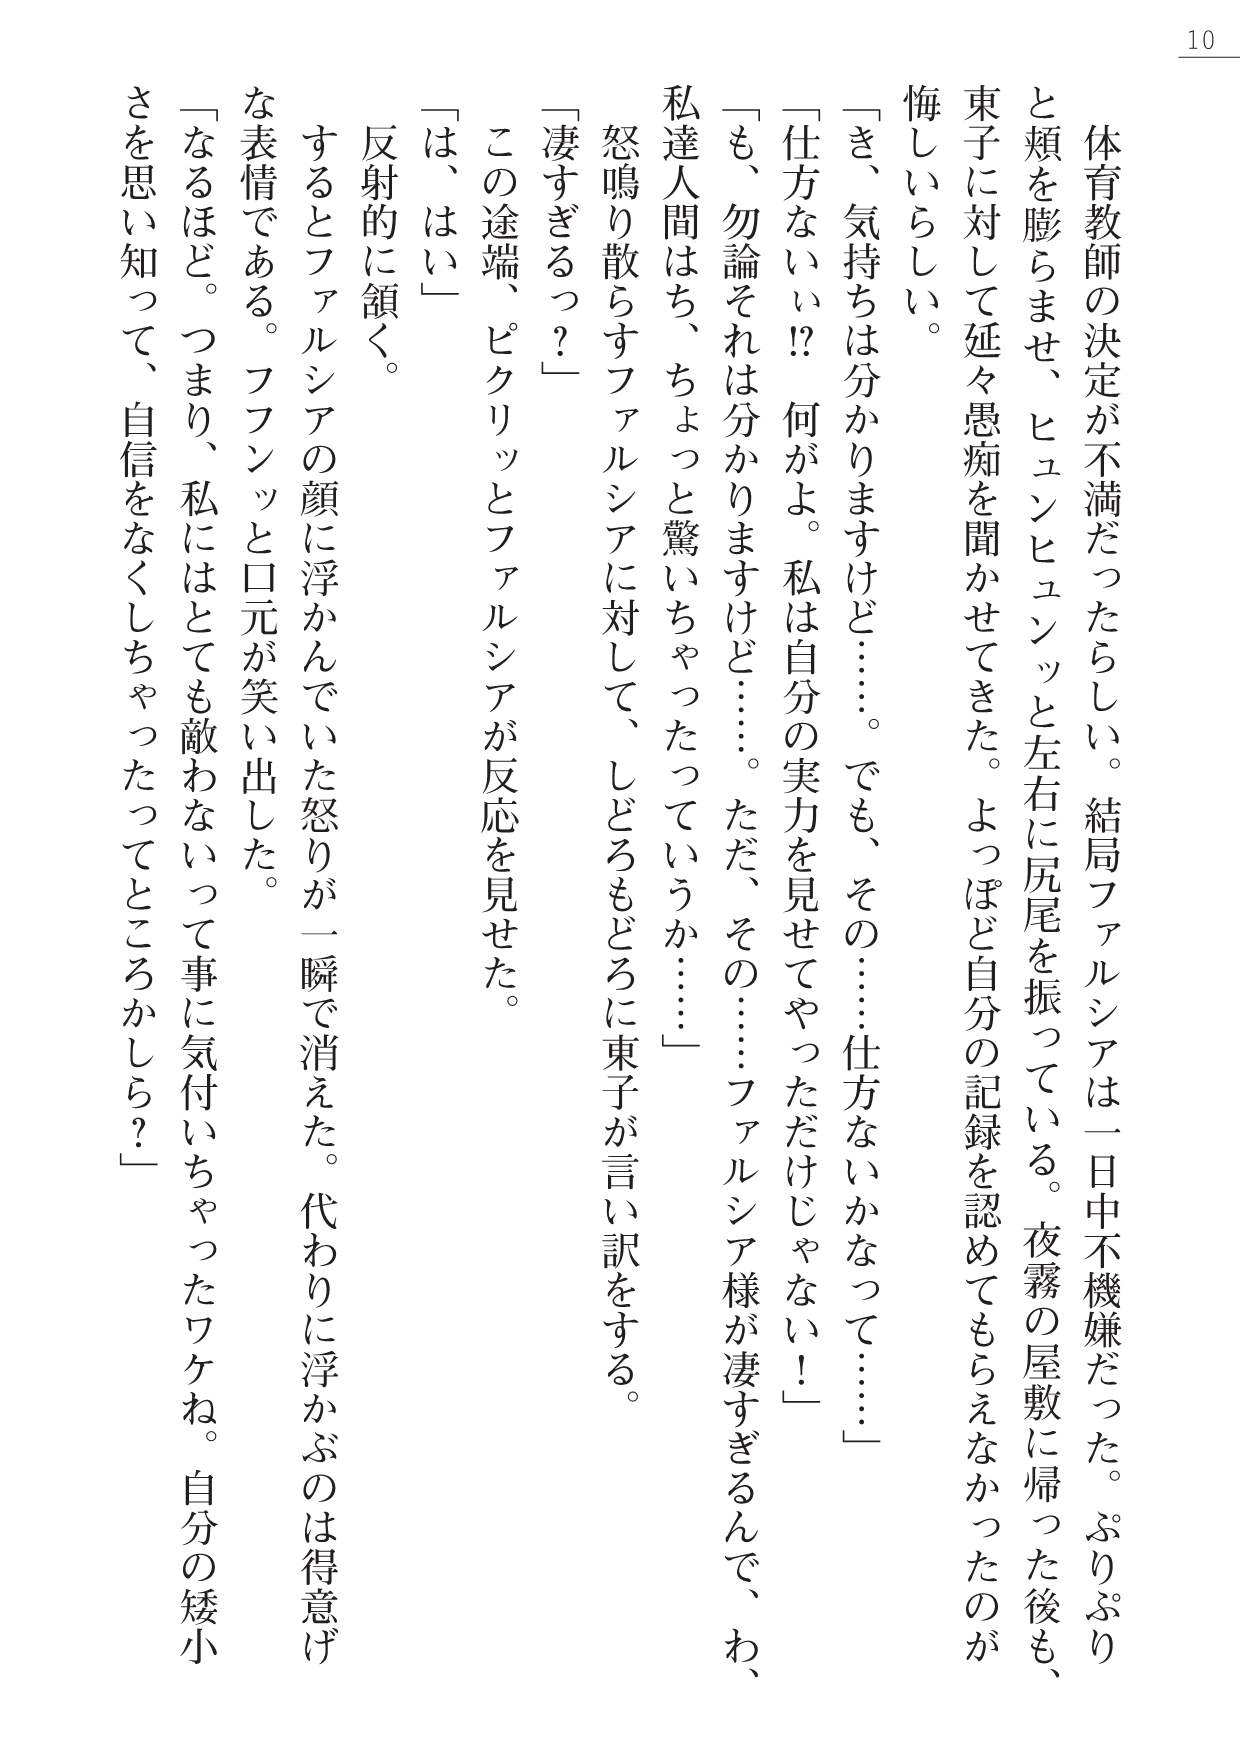 10
　体育教師の決定が不満だったらしい。結局ファルシアは一日中不機嫌だった。ぷりぷり
と頬を膨らませ、ヒュンヒュンッと左右に尻尾を振っている。夜霧の屋敷に帰った後も、
東子に対して延々愚痴を聞かせてきた。よっぽど自分の記録を認めてもらえなかったのが
悔しいらしい。
「き、気持ちは分かりますけど……。でも、その……仕方ないかなって……」
「仕方ないぃ!?　何がよ。私は自分の実力を見せてやっただけじゃない！」
「も、勿論それは分かりますけど……。ただ、その……ファルシア様が凄すぎるんで、わ、
私達人間はち、ちょっと驚いちゃったっていうか……」
　怒鳴り散らすファルシアに対して、しどろもどろに東子が言い訳をする。
「凄すぎるっ？」
　この途端、ピクリッとファルシアが反応を見せた。
「は、はい」
　反射的に頷く。
　するとファルシアの顔に浮かんでいた怒りが一瞬で消えた。代わりに浮かぶのは得意げ
な表情である。フフンッと口元が笑い出した。
「なるほど。つまり、私にはとても敵わないって事に気付いちゃったワケね。自分の矮小
さを思い知って、自信をなくしちゃったってところかしら？」